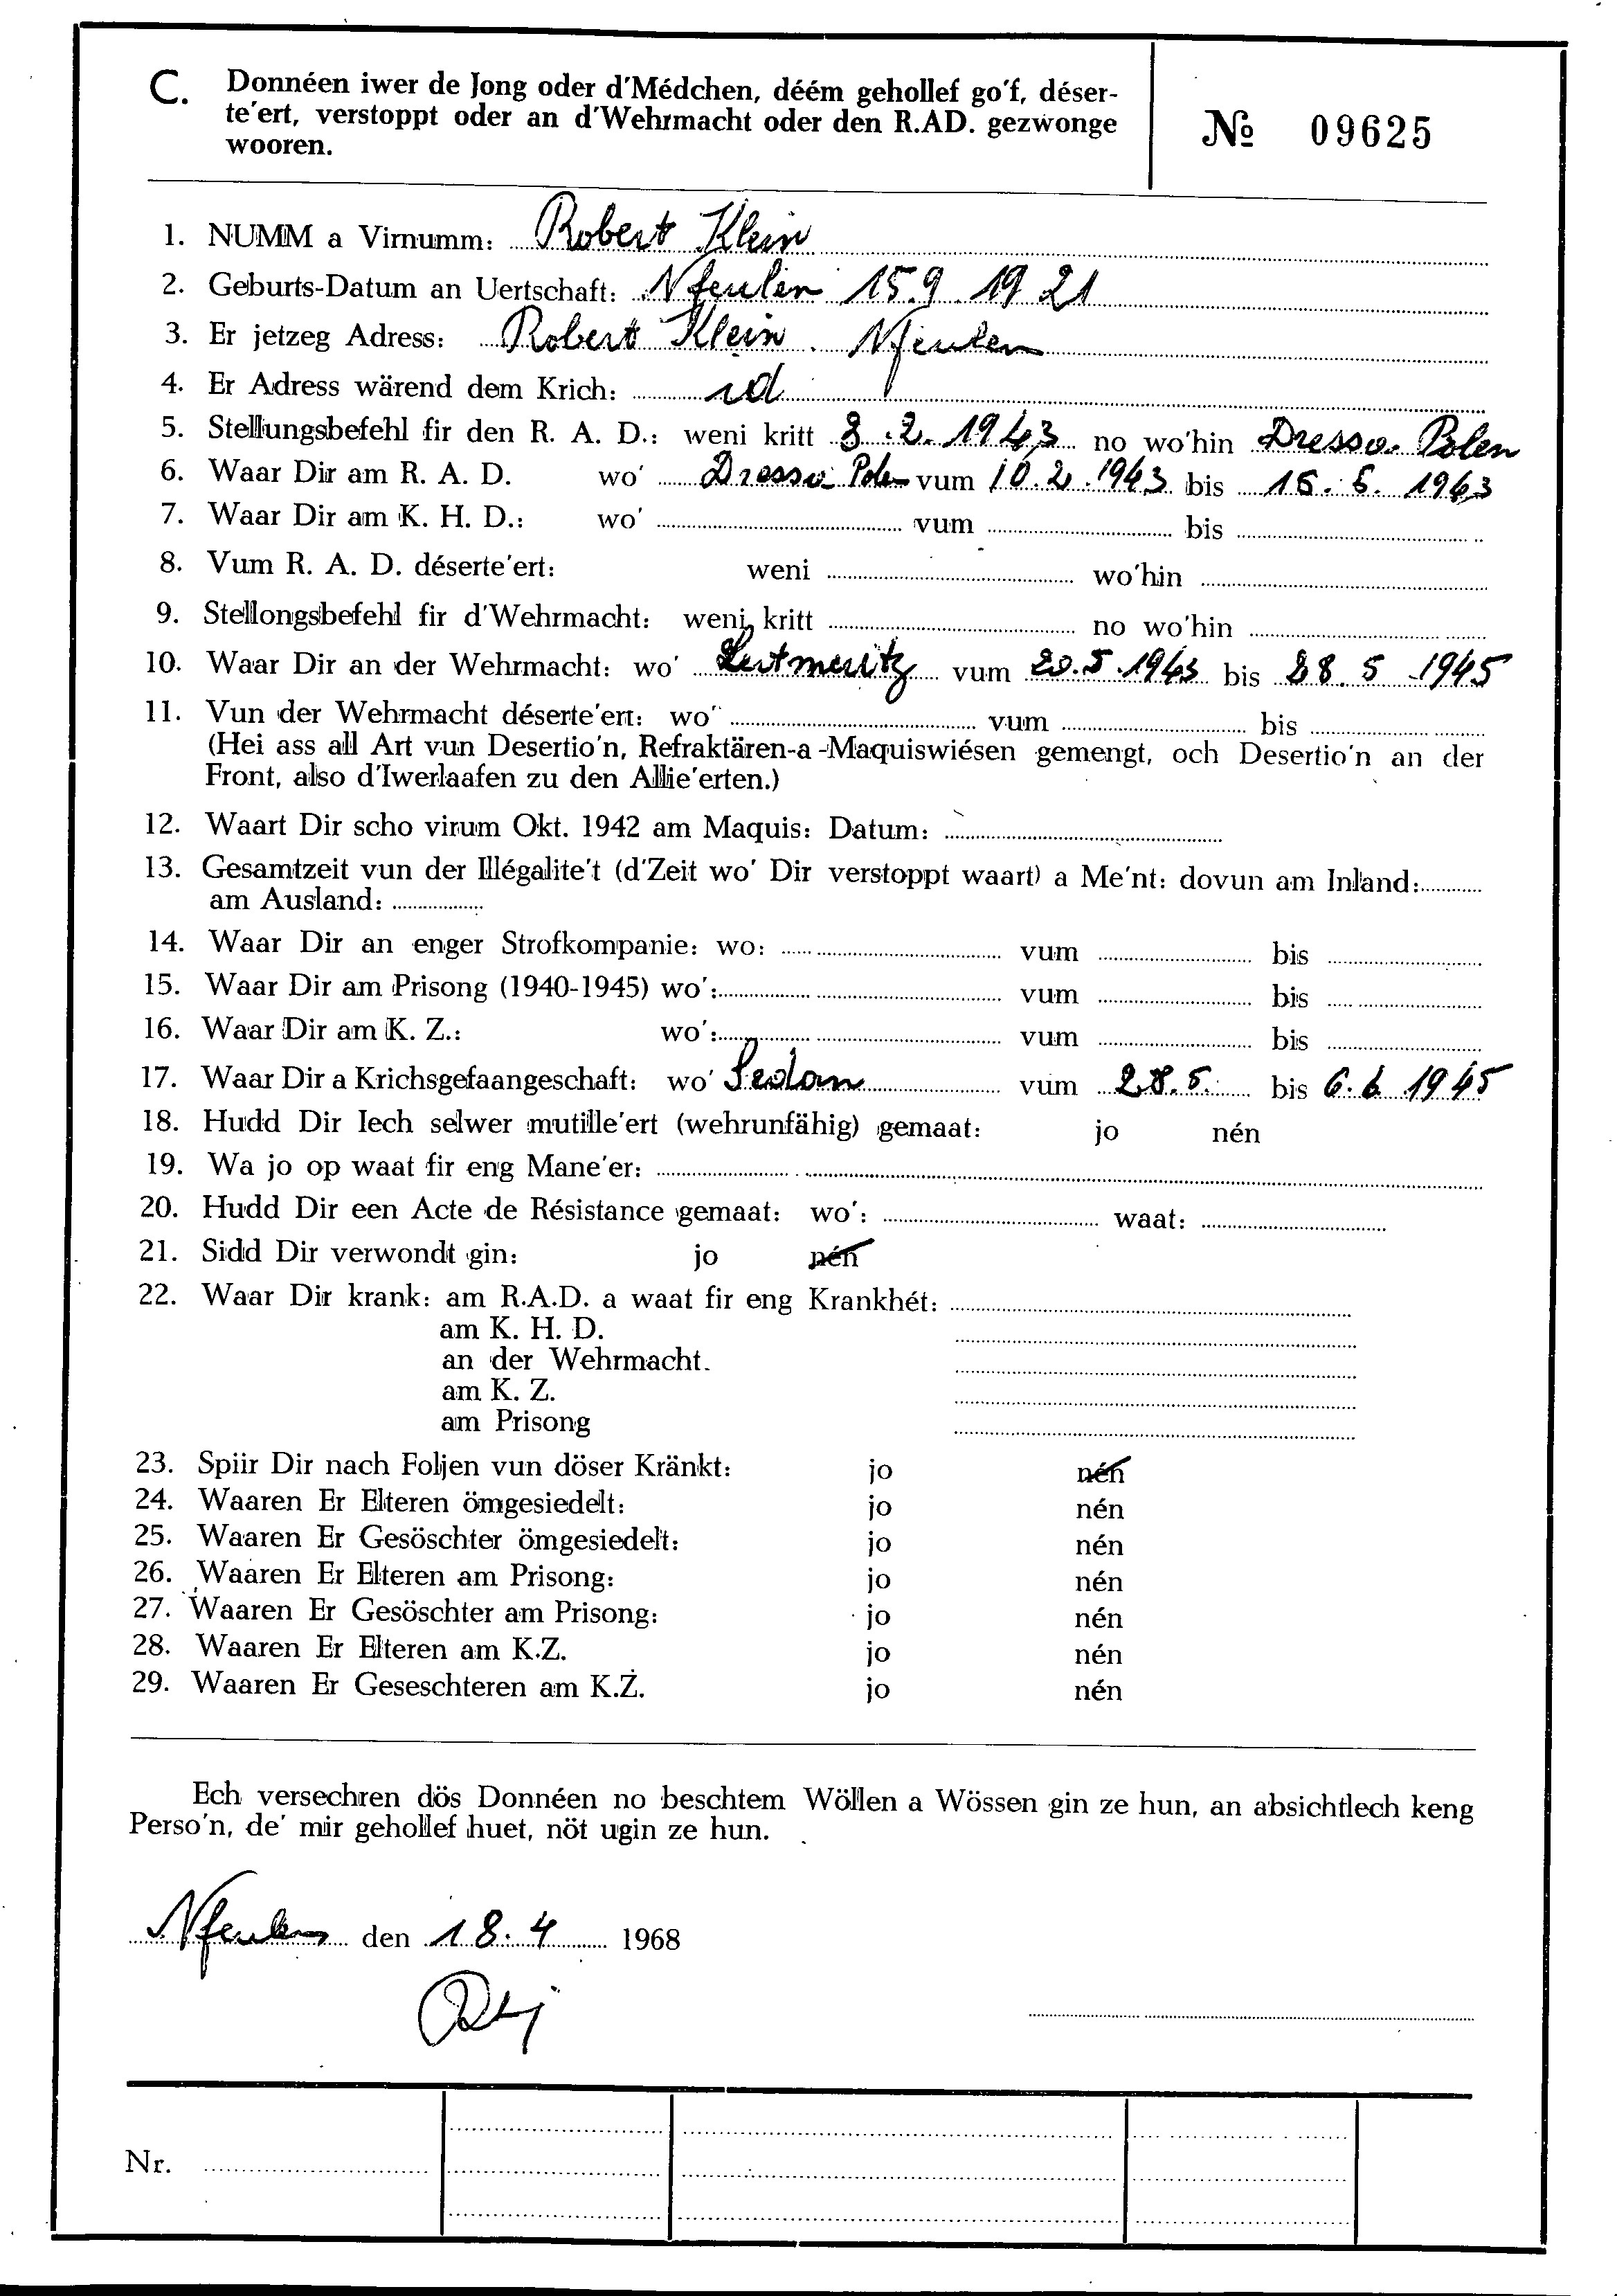 C. Donnéen iwer de Jong oder d'Médchen, déém gehollef go'f, déser-
te'ert, verstoppt oder an d'Wehrmacht oder den R.AD. gezwonge
wooren.
№ 09625
1. NUMM a Virnumm: Robert Klein
2. Geburts-Datum an Uertschaft: Nfeulen 15.9.1921
3. Er jetzeg Adress: Robert Klein. Nfeulen
4. Er Adress wärend dem Krich: id
5. Stellungsbefehl fir den R. A. D.: weni kritt 8.2.1943 no wo'hin Dresso. Polen
6. Waar Dir am R. A. D. wo' Dresso Polen vum 10.2.1943 bis 15.5.1943
7. Waar Dir am K. H. D.: wo' vum bis
8. Vum R. A. D. déserte'ert: weni wo'hin
9. Stellongsbefehl fir d'Wehrmacht: weni kritt no wo'hin
10. Waar Dir an der Wehrmacht: wo' Leitmeritz vum 20.5.1943 bis 28.5.1945
11. Vun der Wehrmacht déserte'ert: wo' vum bis
(Hei ass all Art vun Desertio'n, Refraktären-a-Maquiswiésen gemengt, och Desertio'n an der
Front, also d'Iwerlaafen zu den Allie'erten.)
12. Waart Dir scho virum Okt. 1942 am Maquis: Datum:
13. Gesamtzeit vun der Illégalite't (d'Zeit wo' Dir verstoppt waart) a Me'nt: dovun am Inland:
am Ausland:
14. Waar Dir an enger Strofkompanie: wo: vum bis
15. Waar Dir am Prisong (1940-1945) wo': vum bis
16. Waar Dir am K. Z.: wo': vum bis
17. Waar Dir a Krichsgefaangeschaft: wo' Sedan vum 28.5. bis 6.6.1945
18. Hudd Dir Iech selwer mutille'ert (wehrunfähig) gemaat: jo nén
19. Wa jo op waat fir eng Mane'er:
20. Hudd Dir een Acte de Résistance gemaat: wo': waat:
21. Sidd Dir verwondt gin: jo nén
22. Waar Dir krank: am R.A.D. a waat fir eng Krankhét:
am K. H. D.
an der Wehrmacht.
am K. Z.
am Prisong
23. Spiir Dir nach Foljen vun döser Kränkt: jo nén
24. Waaren Er Elteren ömgesiedelt: jo nén
25. Waaren Er Gesöschter ömgesiedelt: jo nén
26. Waaren Er Elteren am Prisong: jo nén
27. Waaren Er Gesöschter am Prisong: jo nén
28. Waaren Er Elteren am K.Z. jo nén
29. Waaren Er Geseschteren am K.Z. jo nén
Ech versechren dös Donnéen no beschtem Wöllen a Wössen gin ze hun, an absichtlech keng
Perso'n, de' mir gehollef huet, nöt ugin ze hun.
Nfeulen den 18.4 1968
Nr.